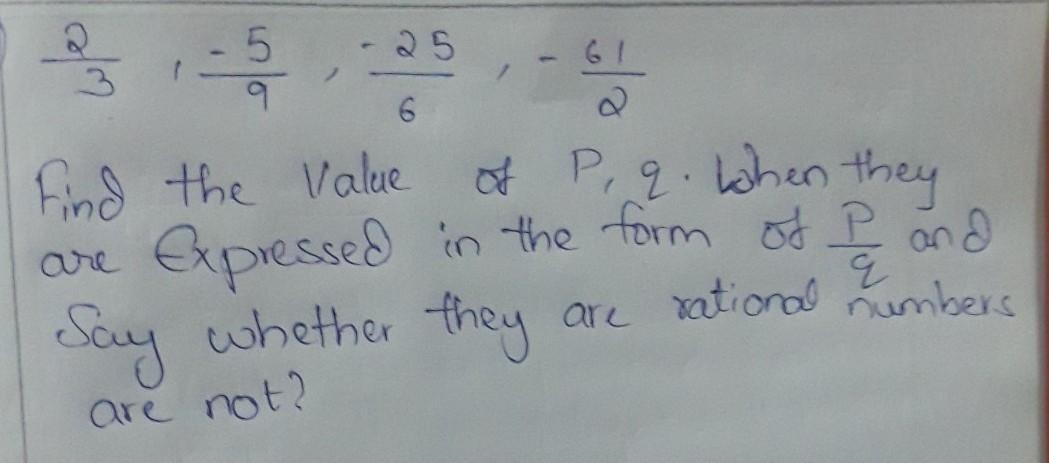 2/3 , -5/9 , -25/6 , -61/2
Find the Value of P, q. When they
are Expressed in the form of P/q and
Say whether they are rational numbers
are not?